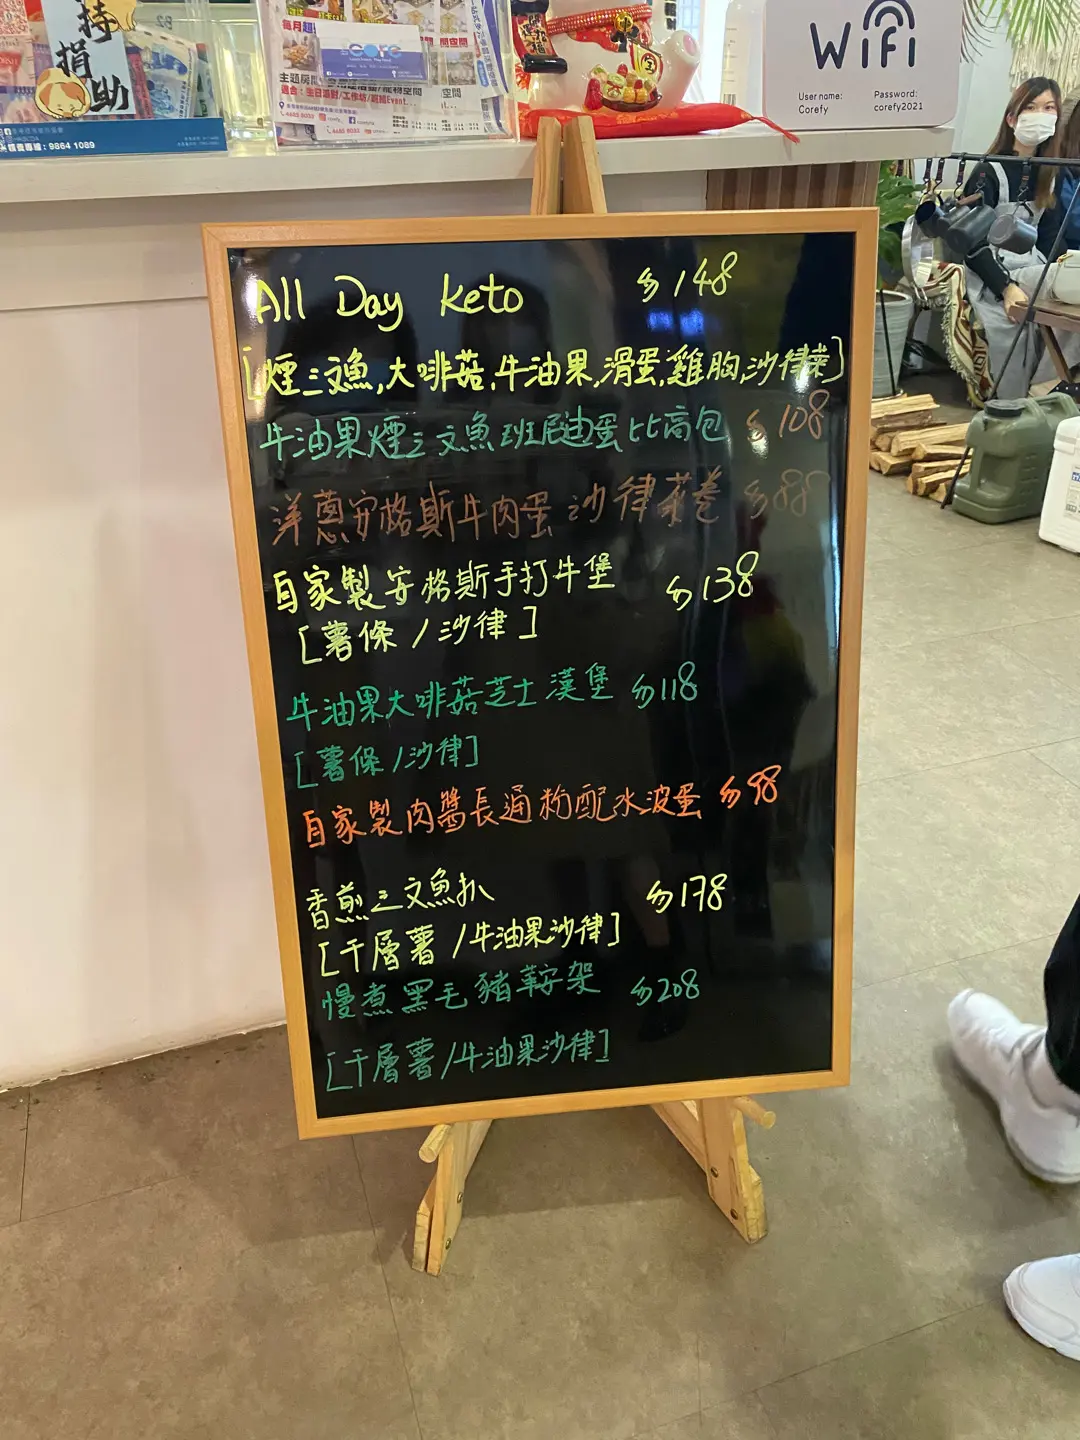 持
捐
助
領養專線：9864 1089
每月
core
主題房
適合：生日派對/工作坊/班相Event...
4685 8053
WiFi
Username:
Corefy
Password:
corefy2021
All Day Keto $148
[煙三文魚,大啡菇,牛油果,滑蛋,雞胸,沙律菜]
牛油果煙三文魚班尼迪蛋比高包 $108
洋蔥安格斯牛肉蛋沙律菜卷 $88
自家製安格斯手打牛堡 $138
[薯條/沙律]
牛油果大啡菇芝士漢堡 $118
[薯條/沙律]
自家製肉醬長通粉配水波蛋 $98
香煎三文魚扒 $178
[千層薯/牛油果沙律]
慢煮黑毛豬鞍架 $208
[千層薯/牛油果沙律]